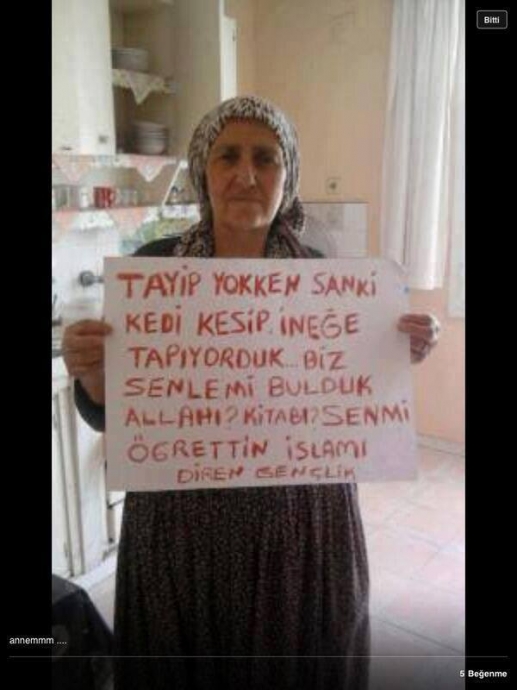 Bitti
TAYİP YOKKEN SANKİ
KEDİ KESİP. İNEĞE
TAPIYORDUK... BİZ
SENLEMİ BULDUK
ALLAHI? KİTABI? SENMİ
ÖGRETTİN İSLAMI
DİREN GENÇLİK
annemmm ....
5 Beğenme